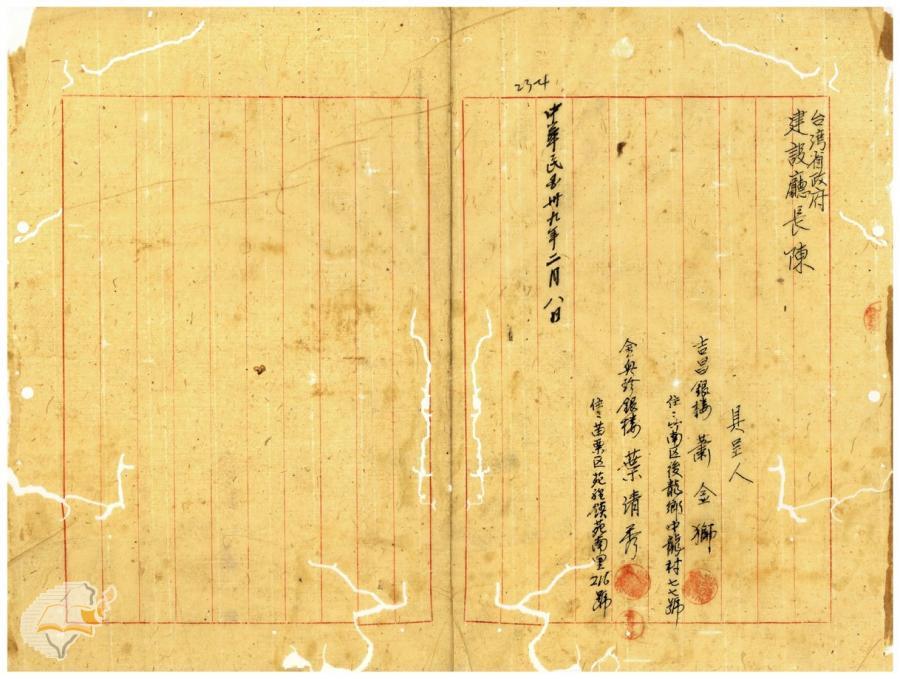 台湾省政府
建設廳長 陳
具呈人
吉昌銀楼 蕭金獅
住:竹南区後龍鄉中龍村七七號
金興珍銀楼 葉清秀
住:苗栗区苑裡鎮苑南里216號
中華民国卅九年二月八日
234